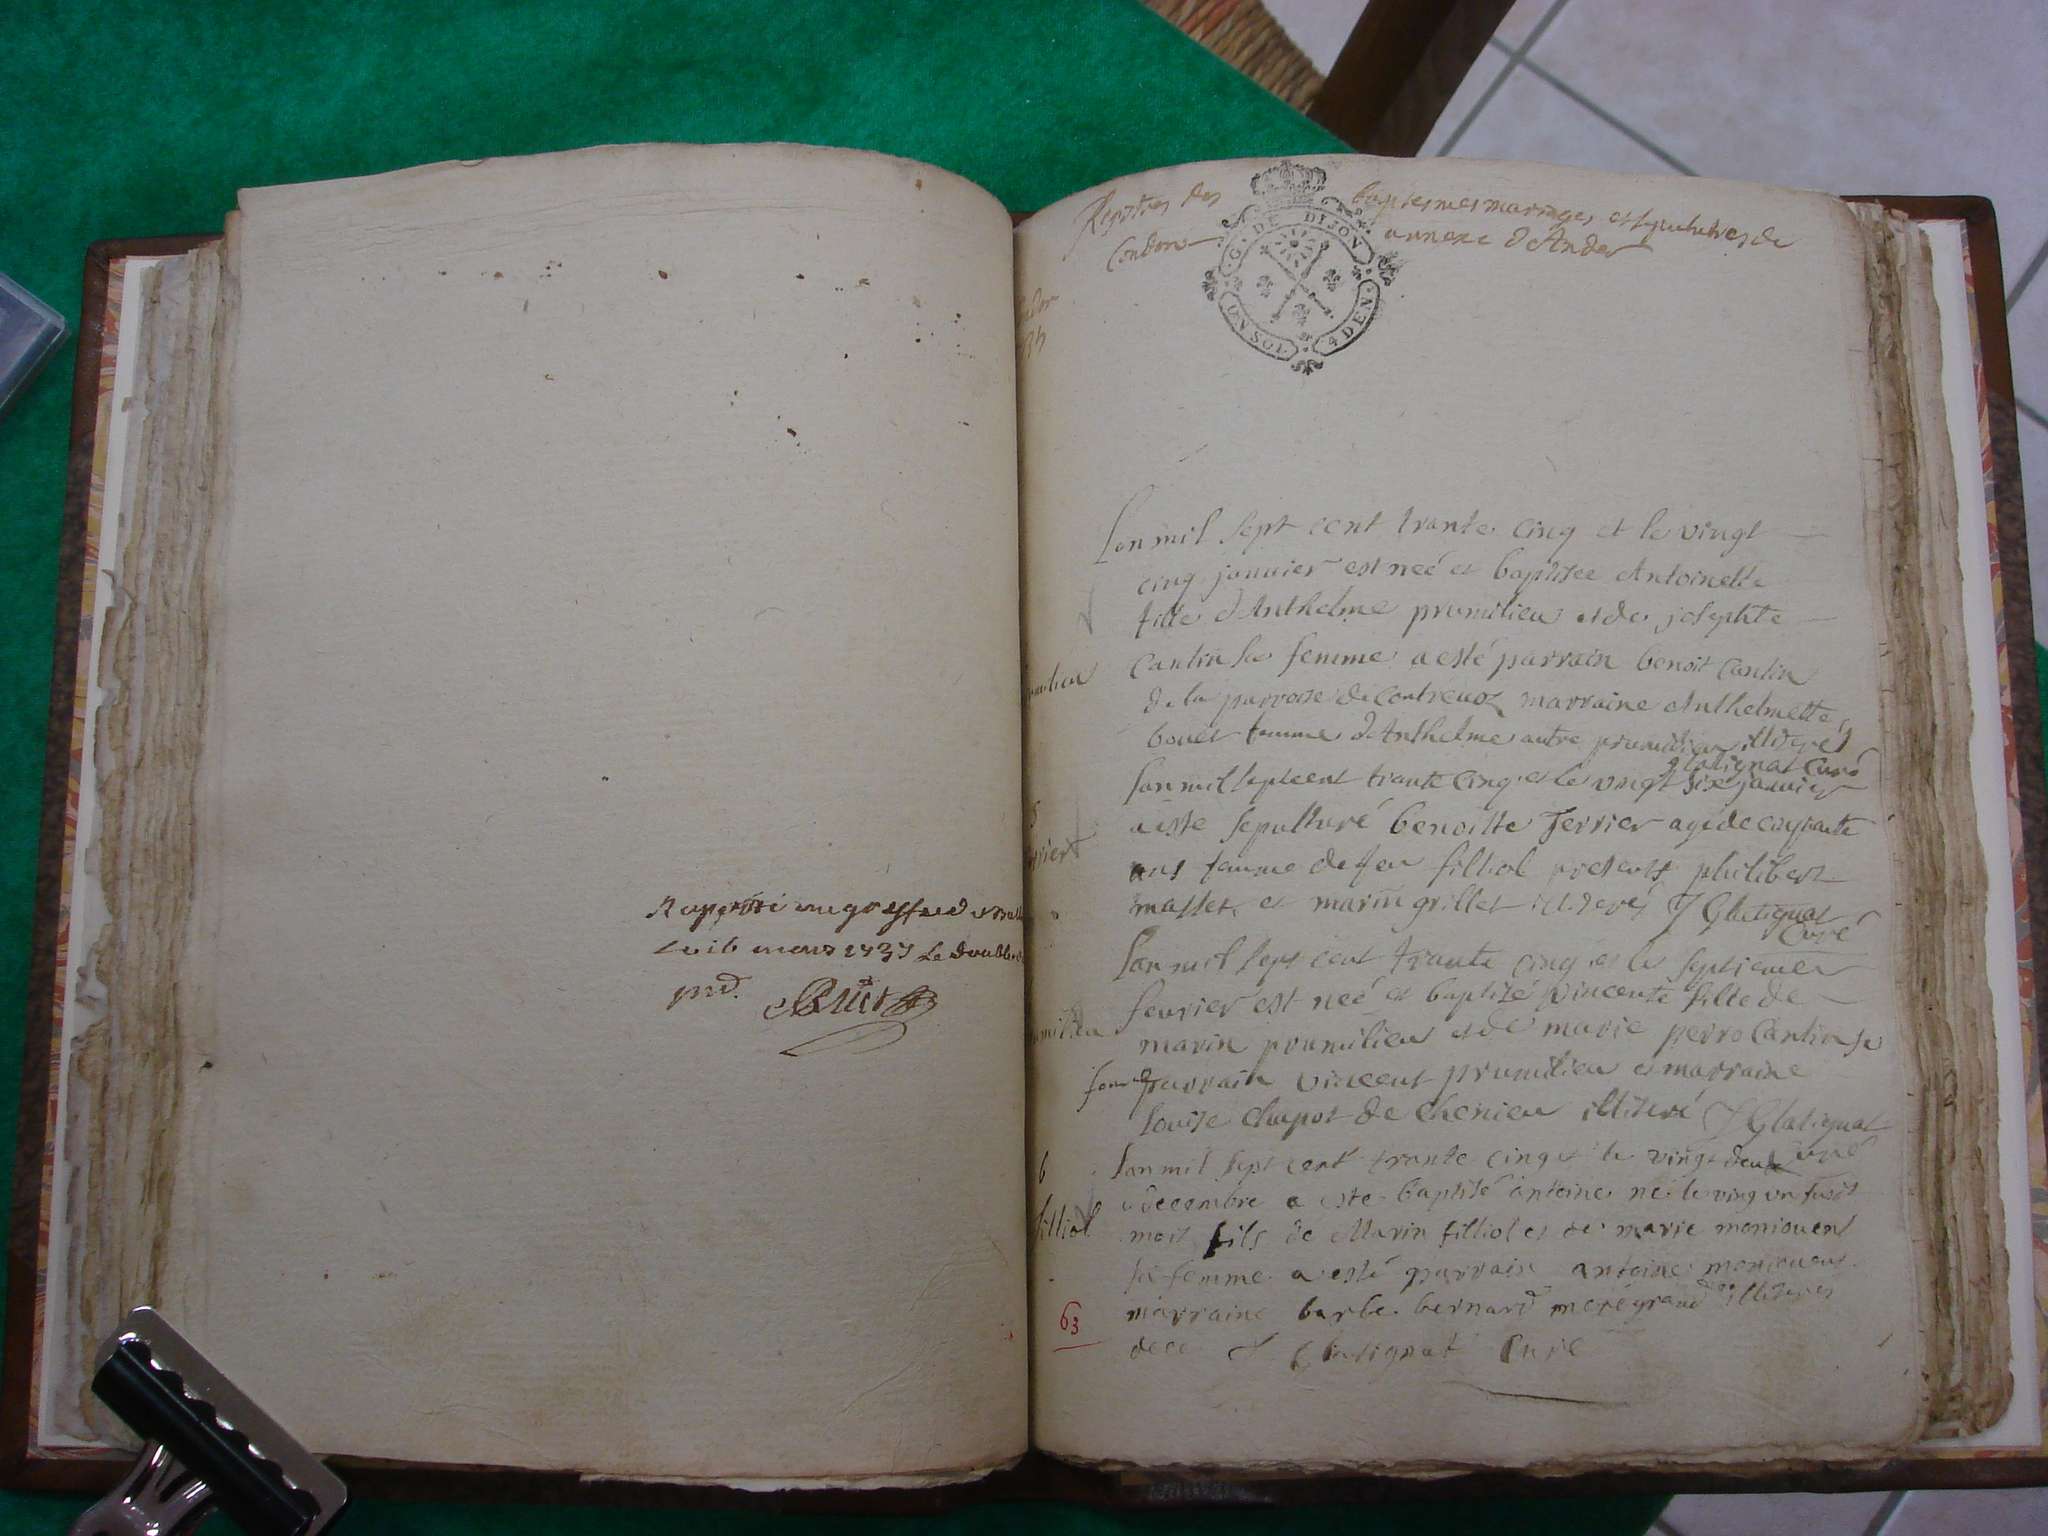 Rapporté au greffe
le 16 mars 1737 Le double
Registres des baptesmes mariages et sepultures de
Condon annexe d'Andes
G. DE DIJON
UN SOL 4 DEN
Lan mil sept cent trante cinq et le vingt
cinq janvier est neé et baptisee Antoinette
fille d'Anthelme prumilieu et de josephte
Cantin sa femme a esté parrain benoit Cantin
de la parroise de Contreuoz marraine Anthelmette
bouet femme d'Anthelme autre prumilieu illiterés
J Glatignat Curé
Lan mil septcent trante cinq et le vingt six janvier
a este sepulturé benoitte Ferrier agé de cinquante
ans femme de feu filliol presents philibert
masset et marin grillet illiterés J Glatignat
Curé
Lan mil sept cent trante cinq et le septiemes
fevrier est neé et baptisé vincente fille de
marin prumilieu et de marie perro Cantin sa
femme parrain vincent prumilieu et marraine
Louise chapot de Chenieu illiteré J Glatignat
Curé
6
Lan mil sept cent trante cinq et le vingt deux
decembre a este baptisé antoine né le ving un susdt
filliol
mois fils de Marin filliol et de marie moniouent
sa femme a esté parrain antoine moniouent
marraine barbe bernard mere grand illiteres
63
dece J Glatignat Curé